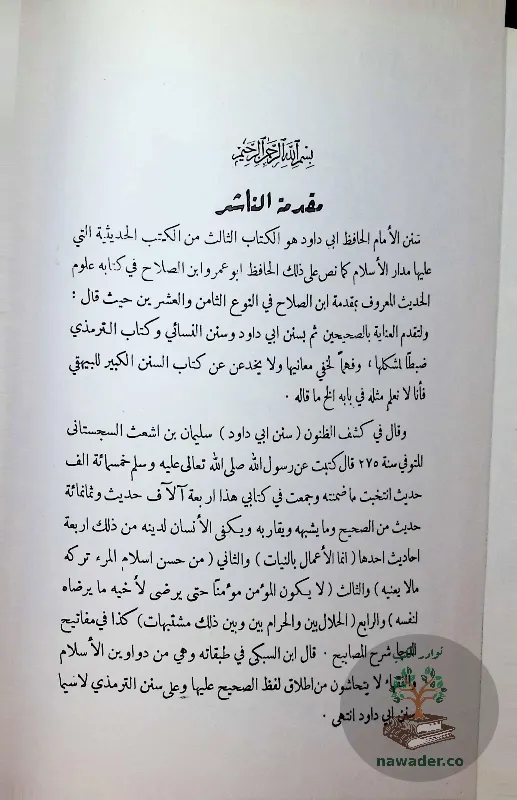 بسم الله الرحمن الرحيم
مقدمة الناشر
سنن الأمام الحافظ ابي داود هو الكتاب الثالث من الكتب الحديثية التي
عليها مدار الأسلام كما نص على ذلك الحافظ ابو عمرو ابن الصلاح في كتابه علوم
الحديث المعروف بمقدمة ابن الصلاح في النوع الثامن والعشرين حيث قال :
ولتقدم العناية بالصحيحين ثم بسنن ابي داود وسنن النسائي وكتاب الترمذي
ضبطاً لمشكلها ، وفهماً لخفي معانيها ولا يخدعن عن كتاب السنن الكبير للبيهقي
فأنا لا نعلم مثله في بابه الخ ما قاله .
وقال في كشف الظنون ( سنن ابي داود ) سليمان بن اشعث السجستانى
المتوفي سنة ٢٧٥ قال كتبت عن رسول الله صلى الله تعالى عليه وسلم خمسمائة الف
حديث انتخبت ما ضمنته وجمعت في كتابي هذا اربعة آلآف حديث وثمانمائة
حديث من الصحيح وما يشبهه ويقاربه ويكفى الأنسان لدينه من ذلك اربعة
احاديث احدها ( انما الأعمال بالنيات ) والثاني ( من حسن اسلام المرء تركه
مالا يعنيه ) والثالث ( لا يكون المؤمن مؤمناً حتى يرضى لأخيه ما يرضاه
لنفسه ) والرابع ( الحلال بين والحرام بين وبين ذلك مشتبهات ) كذا في مفاتيح
شرح المصابيح . قال ابن السبكى في طبقاته وهي من دواوين الأسلام
لا يتحاشون من اطلاق لفظ الصحيح عليها وعلى سنن الترمذي لاسيما
سنن ابي داود انتهى .
نوادر
nawader.co